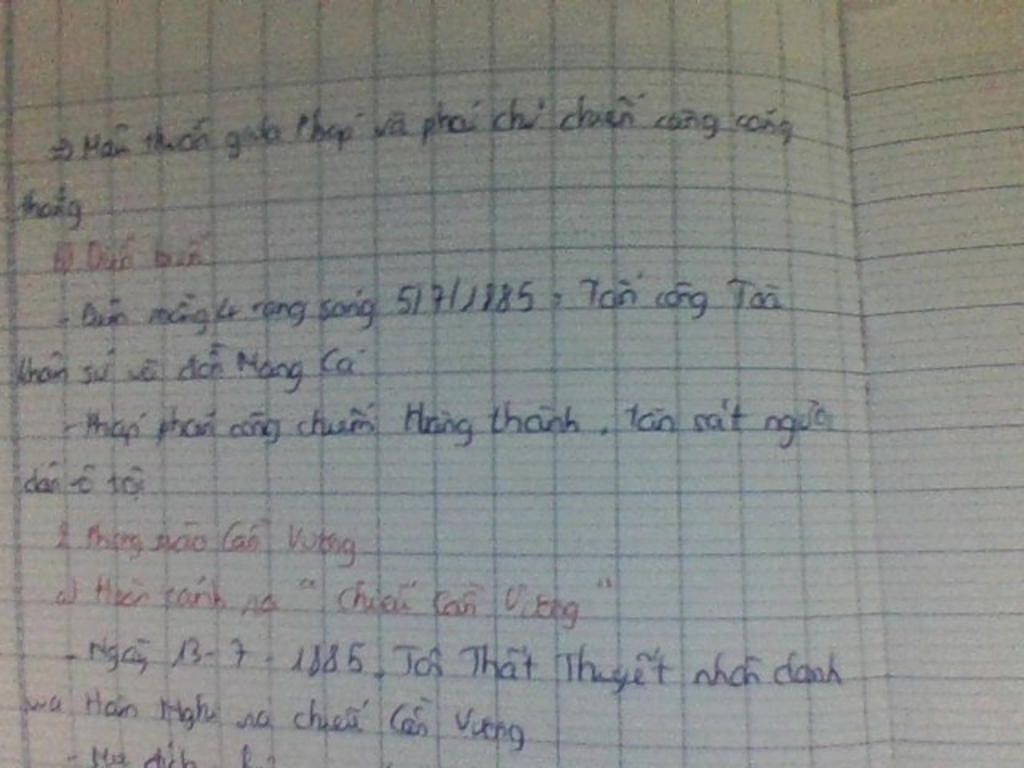 => Mâu thuẫn giữa Pháp và phái chủ chiến càng căng
thẳng
b) Diễn biến
- Đêm mồng 4 rạng sáng 5/7/1885 : Tấn công Toà
khâm sứ và đồn Mang Cá
- Pháp phản công chiếm Hoàng thành, tàn sát người
dân vô tội
2. Phong trào Cần Vương
a) Hoàn cảnh ra "Chiếu Cần Vương"
- Ngày 13-7-1885, Tôn Thất Thuyết nhân danh
vua Hàm Nghi ra chiếu Cần Vương
- Mục đích